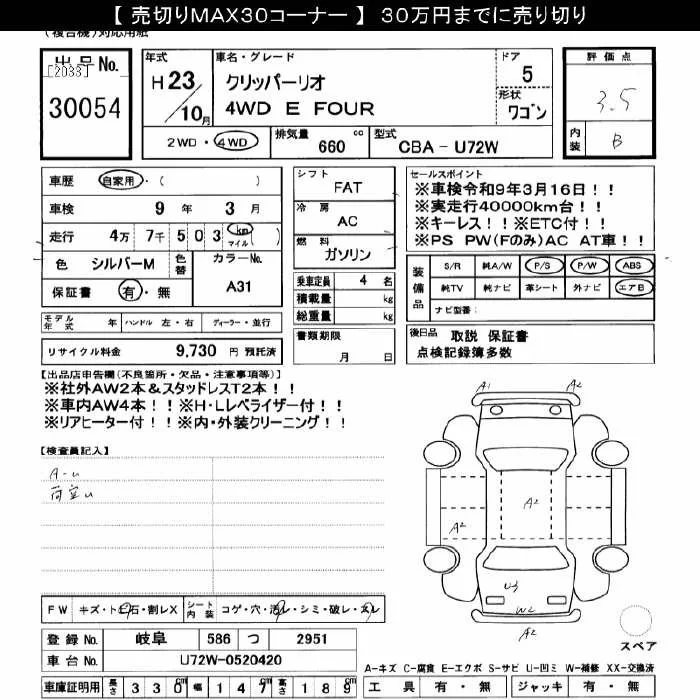 【 売切りMAX30コーナー 】 30万円までに売り切り
(複合機)対応用紙
出品No.
[2033]
30054
年式
H 23/10月
車名・グレード
クリッパーリオ
4WD E FOUR
ドア
5
形状
ワゴン
2WD・4WD
排気量 660 cc
型式 CBA - U72W
評価点
3.5
内装 B
車歴 自家用・( )
車検 9年 3月
走行 4万 7千 5 0 3 km マイル ( )
色 シルバーM 色替 カラーNo. A31
保証書 有・無
モデル年式 年 ハンドル 左・右 ディーラー・並行
リサイクル料金 9,730 円 預託済
シフト
FAT
冷房
AC
燃料
ガソリン
乗車定員 4 名
積載量 kg
総重量 kg
書類期限
月 日
セールスポイント
※車検令和9年3月16日！！
※実走行40000km台！！
※キーレス！！※ETC付！！
※PS PW(Fのみ)AC AT車！！
装備品
S/R 純A/W P/S P/W ABS
純TV 純ナビ 革シート 外ナビ エアB
ナビ型番(
後日品 取説 保証書
点検記録簿多数
【出品店申告欄(不良箇所・欠品・注意事項等)】
※社外AW2本&スタッドレスT2本！！
※車内AW4本！！※H・Lレベライザー付！！
※リアヒーター付！！※内・外装クリーニング！！
【検査員記入】
A-U
荷室U
A1
A2
A2
A2
U3
W2
A2
スペア
FW キズ・トビ石・割レX シート内装 コゲ・穴・汚レ・シミ・破レ・スレ
登録No. 岐阜 586 つ 2951
車台No. U72W-0520420
車庫証明用 長さ 330cm 幅 147cm 高さ 189cm
A-キズ C-腐食 E-エクボ S-サビ U-凹ミ W-補修 XX-交換済
工具 有・無 ジャッキ 有・無